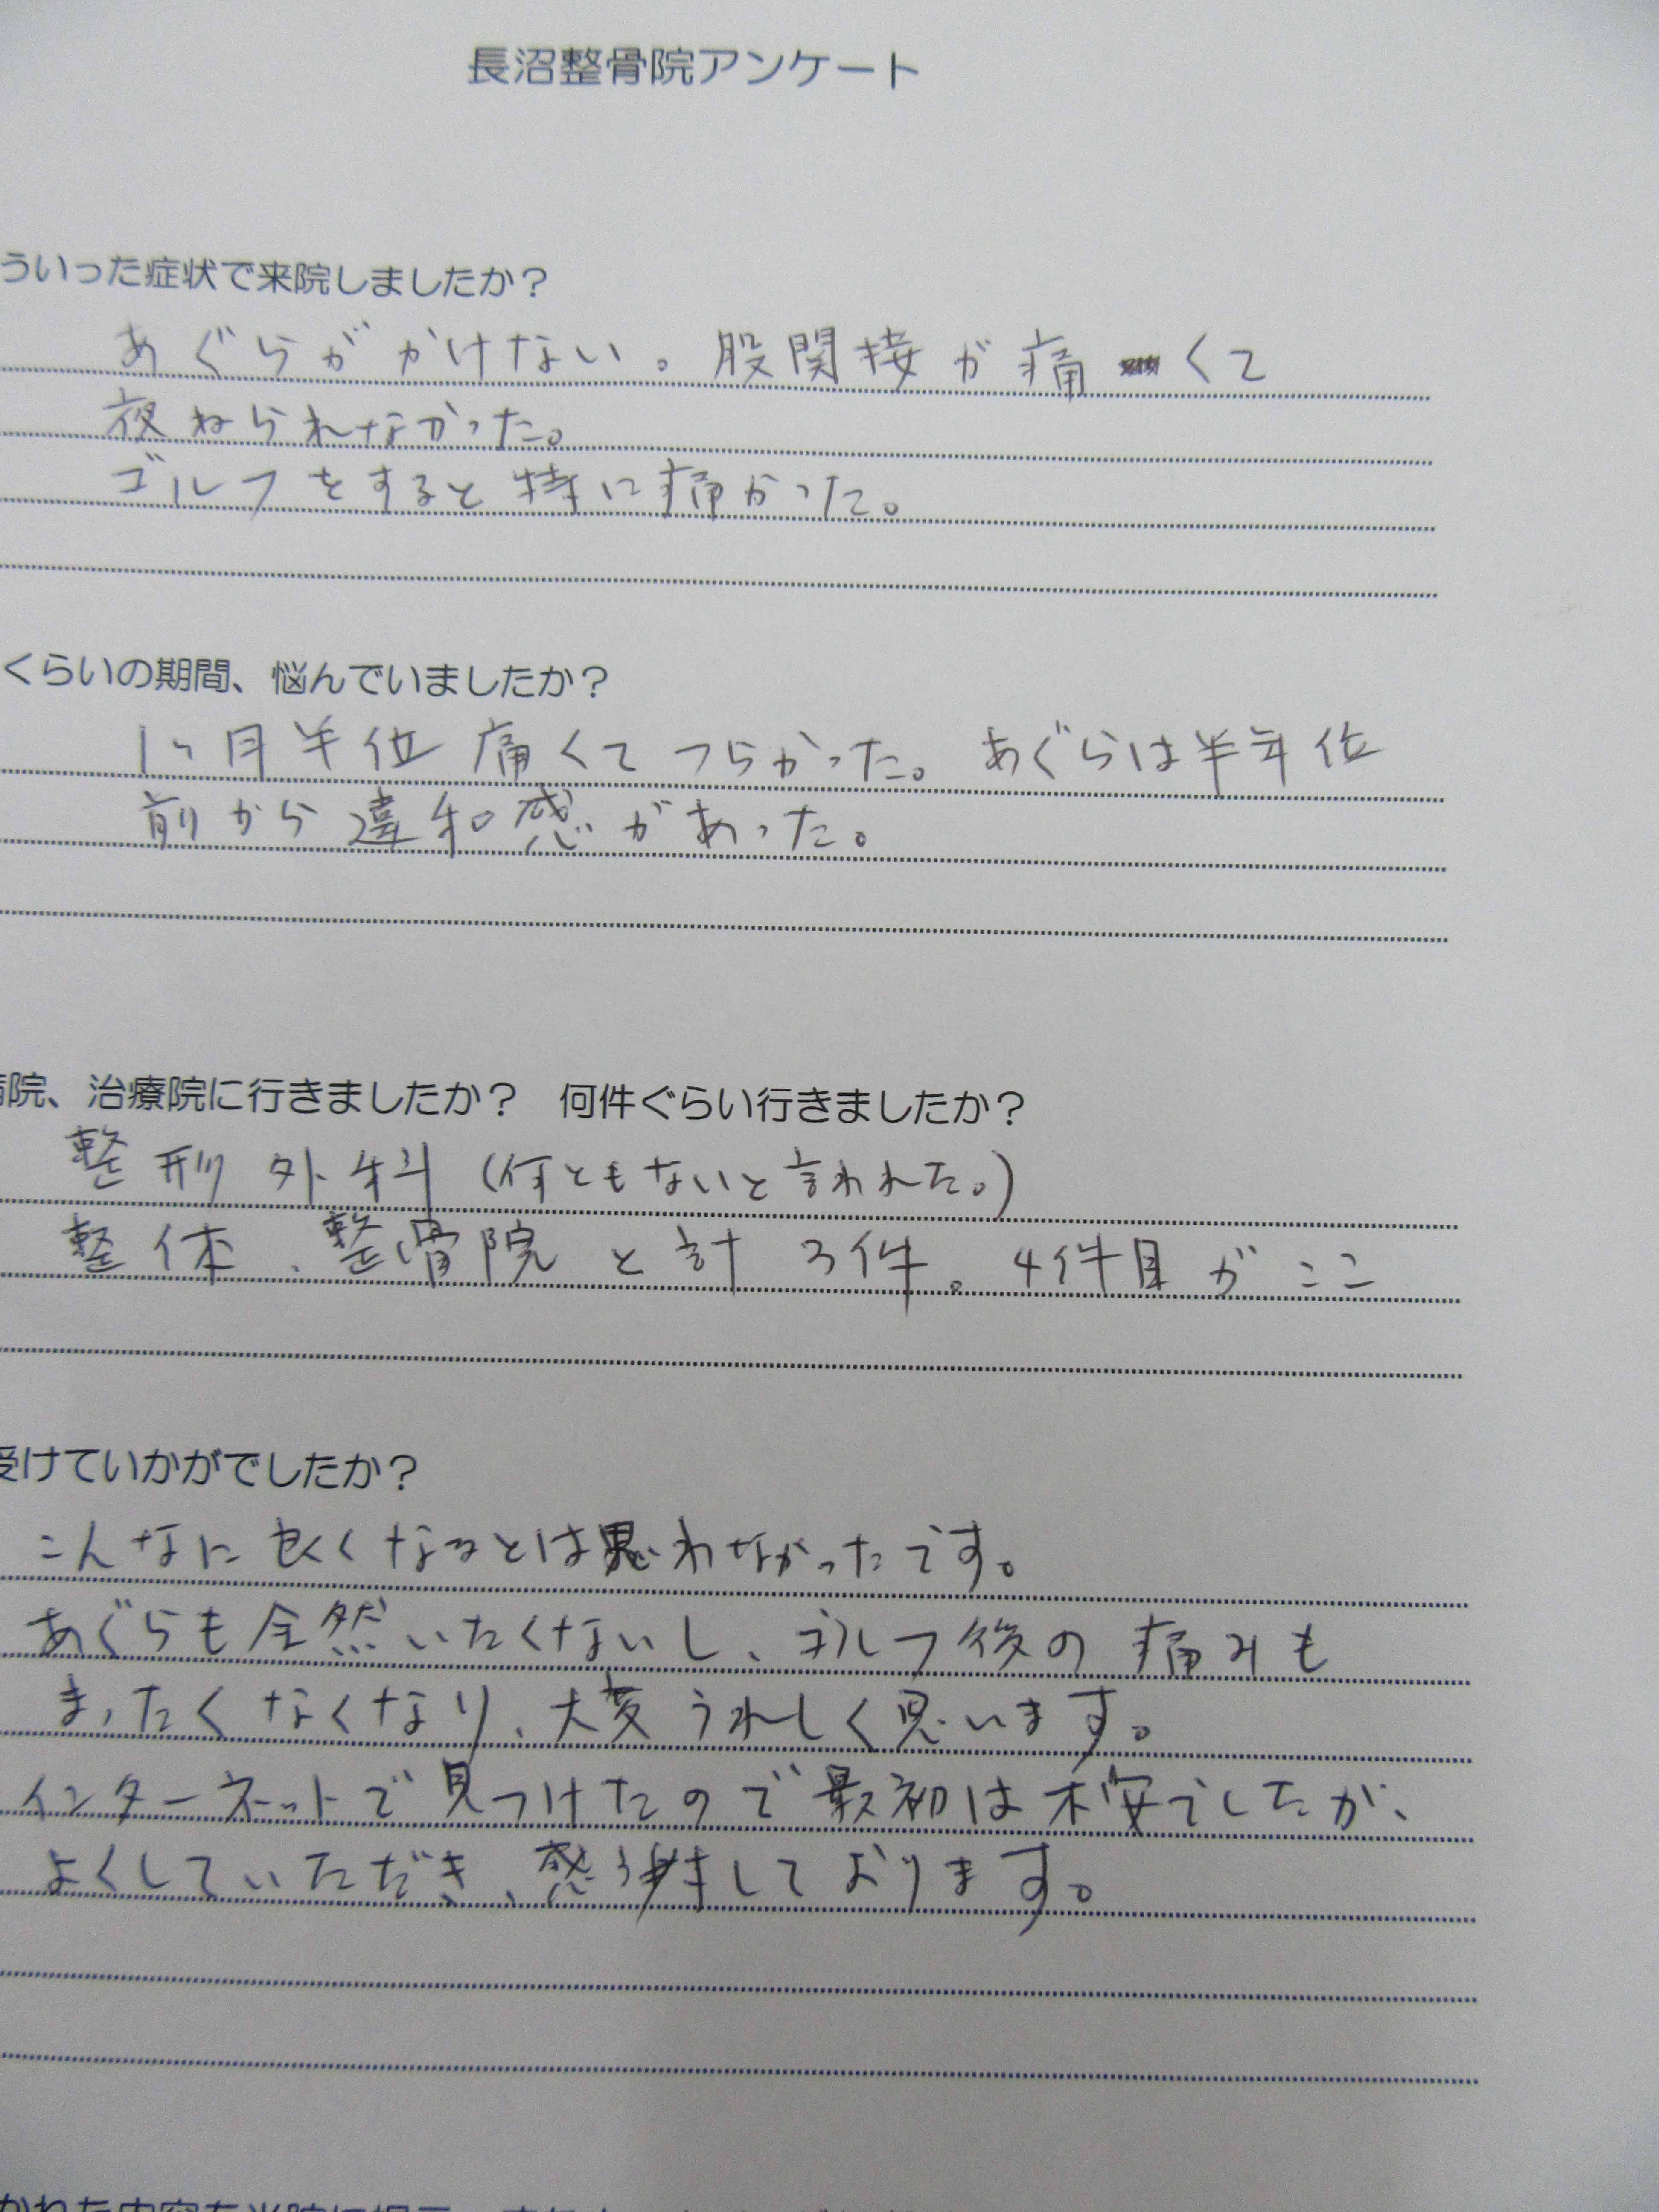 長沼整骨院アンケート
ういった症状で来院しましたか？
あぐらがかけない。股関接が痛くて
夜ねられなかった。
ゴルフをすると特に痛かった。
くらいの期間、悩んでいましたか？
1ヶ月半位痛くてつらかった。あぐらは半年位
前から違和感があった。
院、治療院に行きましたか？　何件ぐらい行きましたか？
整形外科（何ともないと言われた。）
整体、整骨院と計3件。4件目がここ
受けていかがでしたか？
こんなに良くなるとは思わなかったです。
あぐらも全然いたくないし、ゴルフ後の痛みも
まったくなくなり、大変うれしく思います。
インターネットで見つけたので最初は不安でしたが、
よくしていただき、感謝しております。